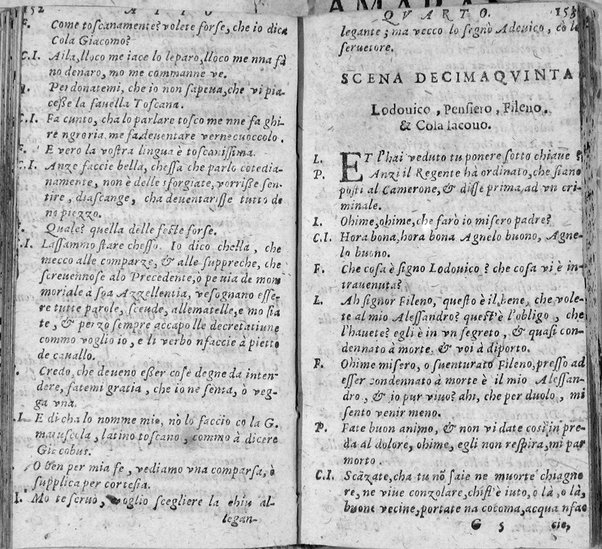 152 ATTO
F. Come toscanamente? volete forse, che io dica
Cola Giacomo?
C.I. Aila, lloco me iace lo leparo, lloco me nna fà
no denaro, mo me commanne ve.
Perdonatemi, che io non sapeua, che vi pia-
cesse la fauella Toscana.
C.I. Fà cunto, cha lo parlare tosco me nne fa ghi
re ngroria me fa deuentare vernecuoccolo.
F. E vero la vostra lingua è toscanissima.
C.I. Anze faccie bella, chessa che parlo cotedia-
namente, non è delle sforgiate, vorrisse sen-
tire, diascange, cha deuentarisse tutto de
no piezzo.
F. Quale? quella delle feste forse.
C.I. Lassammo stare chesso. Io dico chella, che
mecco alle comparze, & alle suppreche, che
screuennose alo Precedente, ò pe via de mem
moriale a soa Azzellentia, vesognano esse-
re tutte parole, sceude, allematelle, e mo sia
te, & perzo sempre accapo lle decretatiune
commo voglio io, e li verbo nfaccie à pietto
de cauallo.
Credo, che deueno esser cose degne da inten-
dere, fatemi gratia, che io ne senta, ò veg-
ga vna.
I. E di cha lo nomme mio, nò lo faccio co la G.
mauscola, latino toscano, commo à dicere
Giacobus.
O ben per mia fe, vediamo vna comparsa, ò
supplica per cortesia.
I. Mo te seruo, voglio scegliere la chiu al-
legan-
QVARTO. 153
legante; ma vecco lo segnò Adouico, co lo
seruetore.
SCENA DECIMAQVINTA
Lodouico, Pensiero, Fileno,
& Cola Iacouo.
L. ET l'hai veduto tu ponere sotto chiaue?
P. Anzi il Regente hà ordinato, che siano
posti al Camerone, & disse prima, ad vn cri
minale.
L. Ohime, ohime, che farò io misero padre?
C.I. Hora bona, hora bona Agnelo buono, Agne-
lo buono.
F. Che cosa è signo Lodouico? che cosa vi è in-
trauenuta?
L. Ah signor Fileno, questo è il bene, che vole-
te al mio Alessandro? quest'è l'obligo, che
l'hauete? egli è in vn segreto, & quasi con-
dennato à morte, & voi à diporto.
F. Ohime misero, o suenturato Fileno, presso ad
esser condennato à morte è il mio Alessan-
dro, & io pur viuo? ahi, che per duolo, mi
sento venir meno.
P. Fate buon animo, & non vi date così in pre-
da al dolore, ohime, egli non respira, mi par
morto.
C.I. Scàzate, cha tu nò saie ne muorte chiagne
re, ne viue conzolare, chist'è iuto, o là, o là,
buone vecine, portate na cocoma, acqua nfac
G 5 cie,